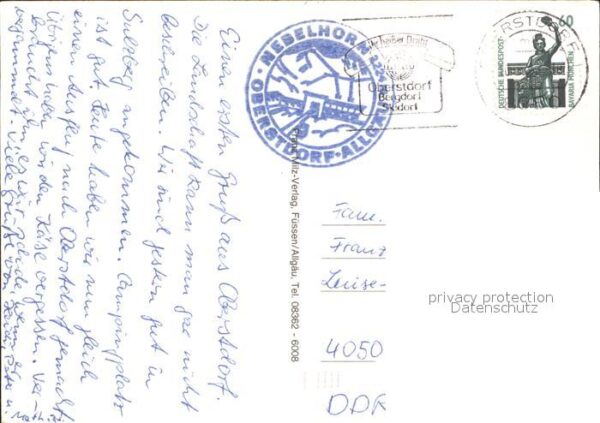 Einen ersten Gruß aus Oberstdorf.
Die Landschaft kann man gar nicht
beschreiben. Wir sind gestern gut in
angekommen. Campingplatz
ist gut. Heute haben wir nun gleich
einen Ausflug nach Oberstdorf gemacht.
Übrigens habe wir den Käse vergessen.
Viele Grüße von
NEBELHORN 2224
OBERSTDORF-ALLGÄU
Ihr heißer Draht
Oberstdorf
Bergdorf
Skidorf
OBERSTDORF
60
DEUTSCHE BUNDESPOST
BAVARIA MÜNCHEN
Franz Milz-Verlag, Füssen/Allgäu, Tel. 08362 - 6008
Fam.
Franz
Luise-
4050
DDR
privacy protection
Datenschutz